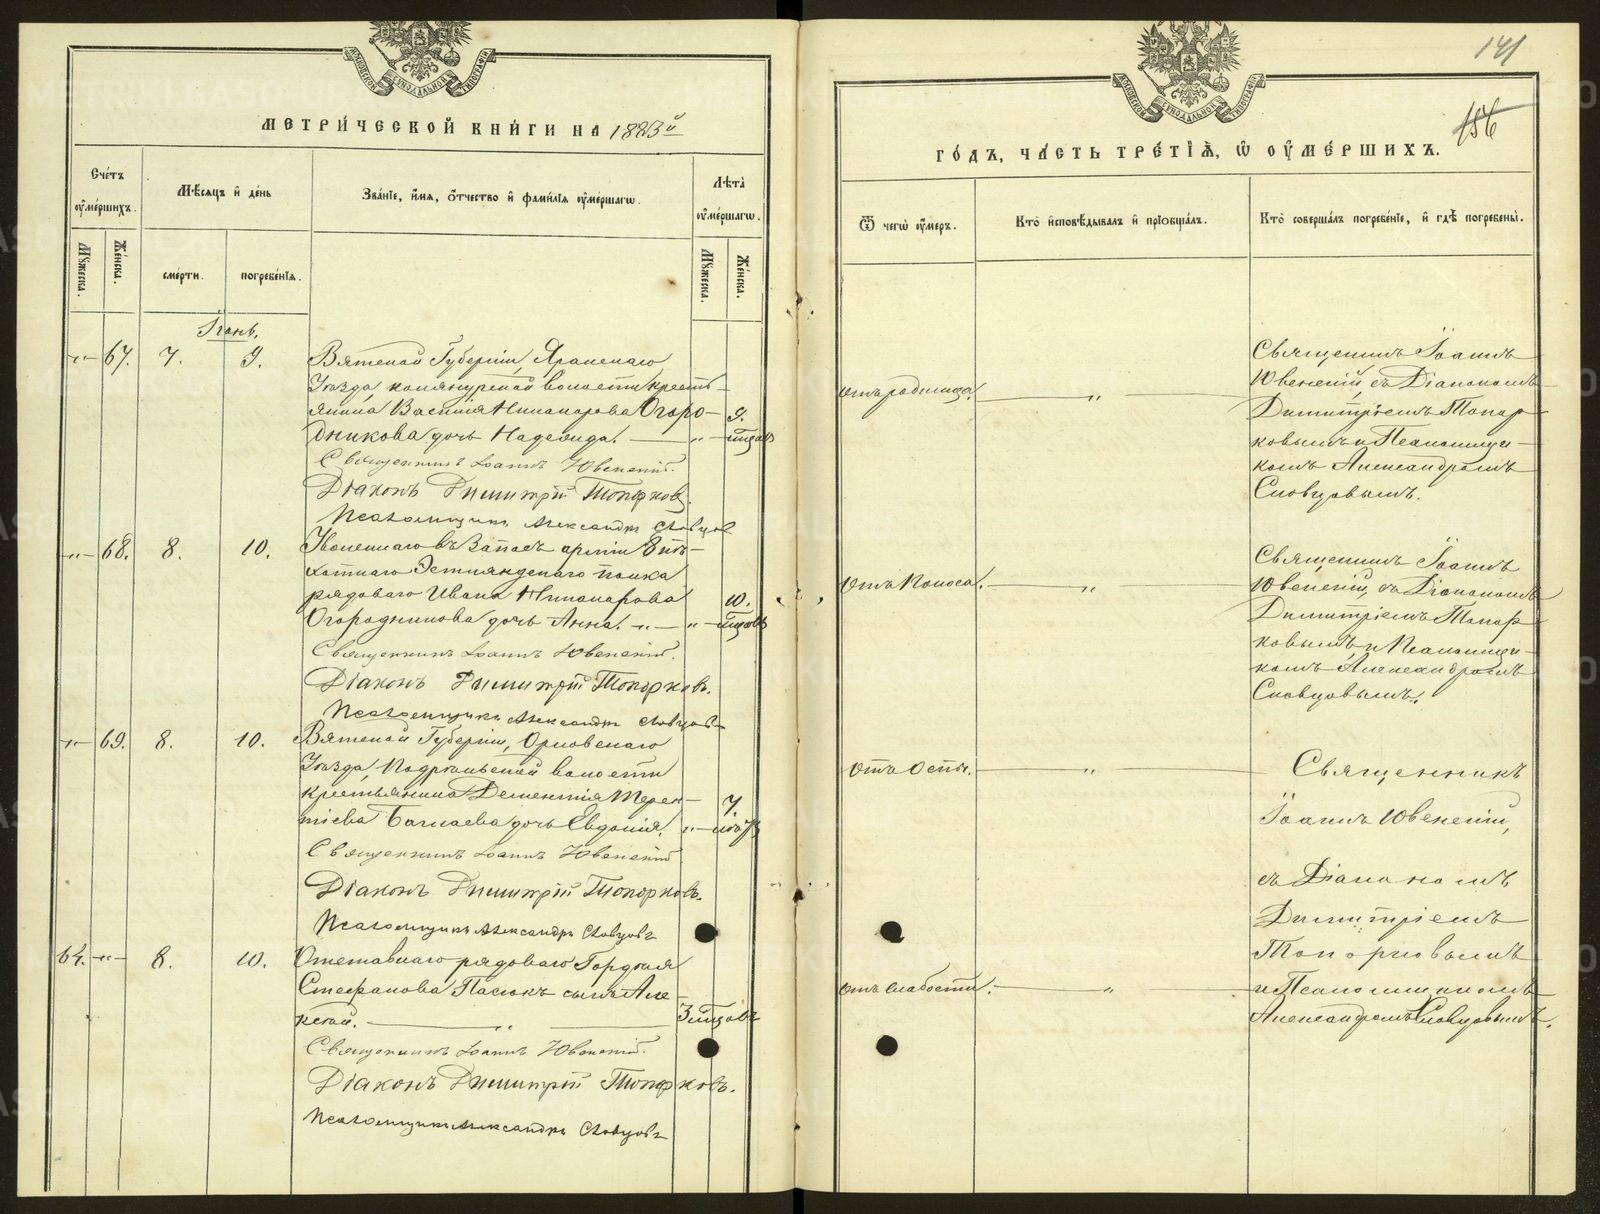 МЕТРИ́ЧЕСКОЙ КНИ́ГИ НА 1883й
Сче́тъ ᲂу҆ме́ршихъ.
Мѣ́сяцъ и҆ де́нь
Зва́нїе, и҆́мя, ѻ҆́тчество и҆ фами́лїя ᲂу҆ме́ршагѡ.
Лѣта̀ ᲂу҆ме́ршагѡ.
Мꙋ́жеска.
Же́нска.
сме́рти.
погребе́нїя.
Мꙋ́жеска.
Же́нска.
Іюнь.
„ 67. 7. 9. Вятской Губерніи, Яранскаго
Уѣзда, волости кресть-
янина Василія Никанорова Огоро- 9.
дникова дочь Надежда. — „ — мѣсяцовъ
Священникъ Іоаннъ Ювенскій.
Діаконъ Димитрій Топорковъ.
Псаломщикъ Александръ Словцовъ
„ 68. 8. 10. Уволеннаго въ Запасъ арміи 8 пѣ-
хотнаго Эстляндскаго полка
рядоваго Ивана Никанорова 10.
Огородникова дочь Анна. — „ — „ — мѣсяцовъ
Священникъ Іоаннъ Ювенскій.
Діаконъ Димитрій Топорковъ.
Псаломщикъ Александръ Словцовъ
„ 69. 8. 10. Вятской Губерніи, Орловскаго
Уѣзда, волости
крестьянина Дементія Терен- 7.
тіева дочь Евдокія. „ —
Священникъ Іоаннъ Ювенскій
Діаконъ Димитрій Топорковъ.
Псаломщикъ Александръ Словцовъ
64. „ 8. 10. Отставнаго рядоваго Гордѣя
Стефанова Пасюкъ сынъ Але-
ксѣй. — „ — 3 мѣсяцовъ
Священникъ Іоаннъ Ювенскій.
Діаконъ Димитрій Топорковъ.
Псаломщикъ Александръ Словцовъ
141
156
ГО́ДЪ, ЧА́СТЬ ТРЕ́ТЇѦ, Ѡ҆ ᲂУ҆МЕ́РШИХЪ.
Ѿ чегѡ̀ ᲂу҆́меръ.
Кто̀ и҆сповѣ́дывалъ и҆ прїѻбща́лъ.
Кто̀ соверша́лъ погребе́нїе, и҆ гдѣ̀ погребены̀.
Отъ родимца. — „ — Священникъ Іоаннъ
Ювенскій, съ Діакономъ
Димитріемъ Топор-
ковымъ и Псаломщи-
комъ Александромъ
Словцовымъ.
Отъ поноса. — „ — Священникъ Іоаннъ
Ювенскій, съ Діакономъ
Димитріемъ Топор-
ковымъ и Псаломщи-
комъ Александромъ
Словцовымъ.
Отъ Оспы. — „ — Священникъ
Іоаннъ Ювенскій,
съ Діакономъ
Димитріемъ
Топорковымъ
Отъ слабости. — „ — и Псаломщикомъ
Александромъ Словцовымъ.